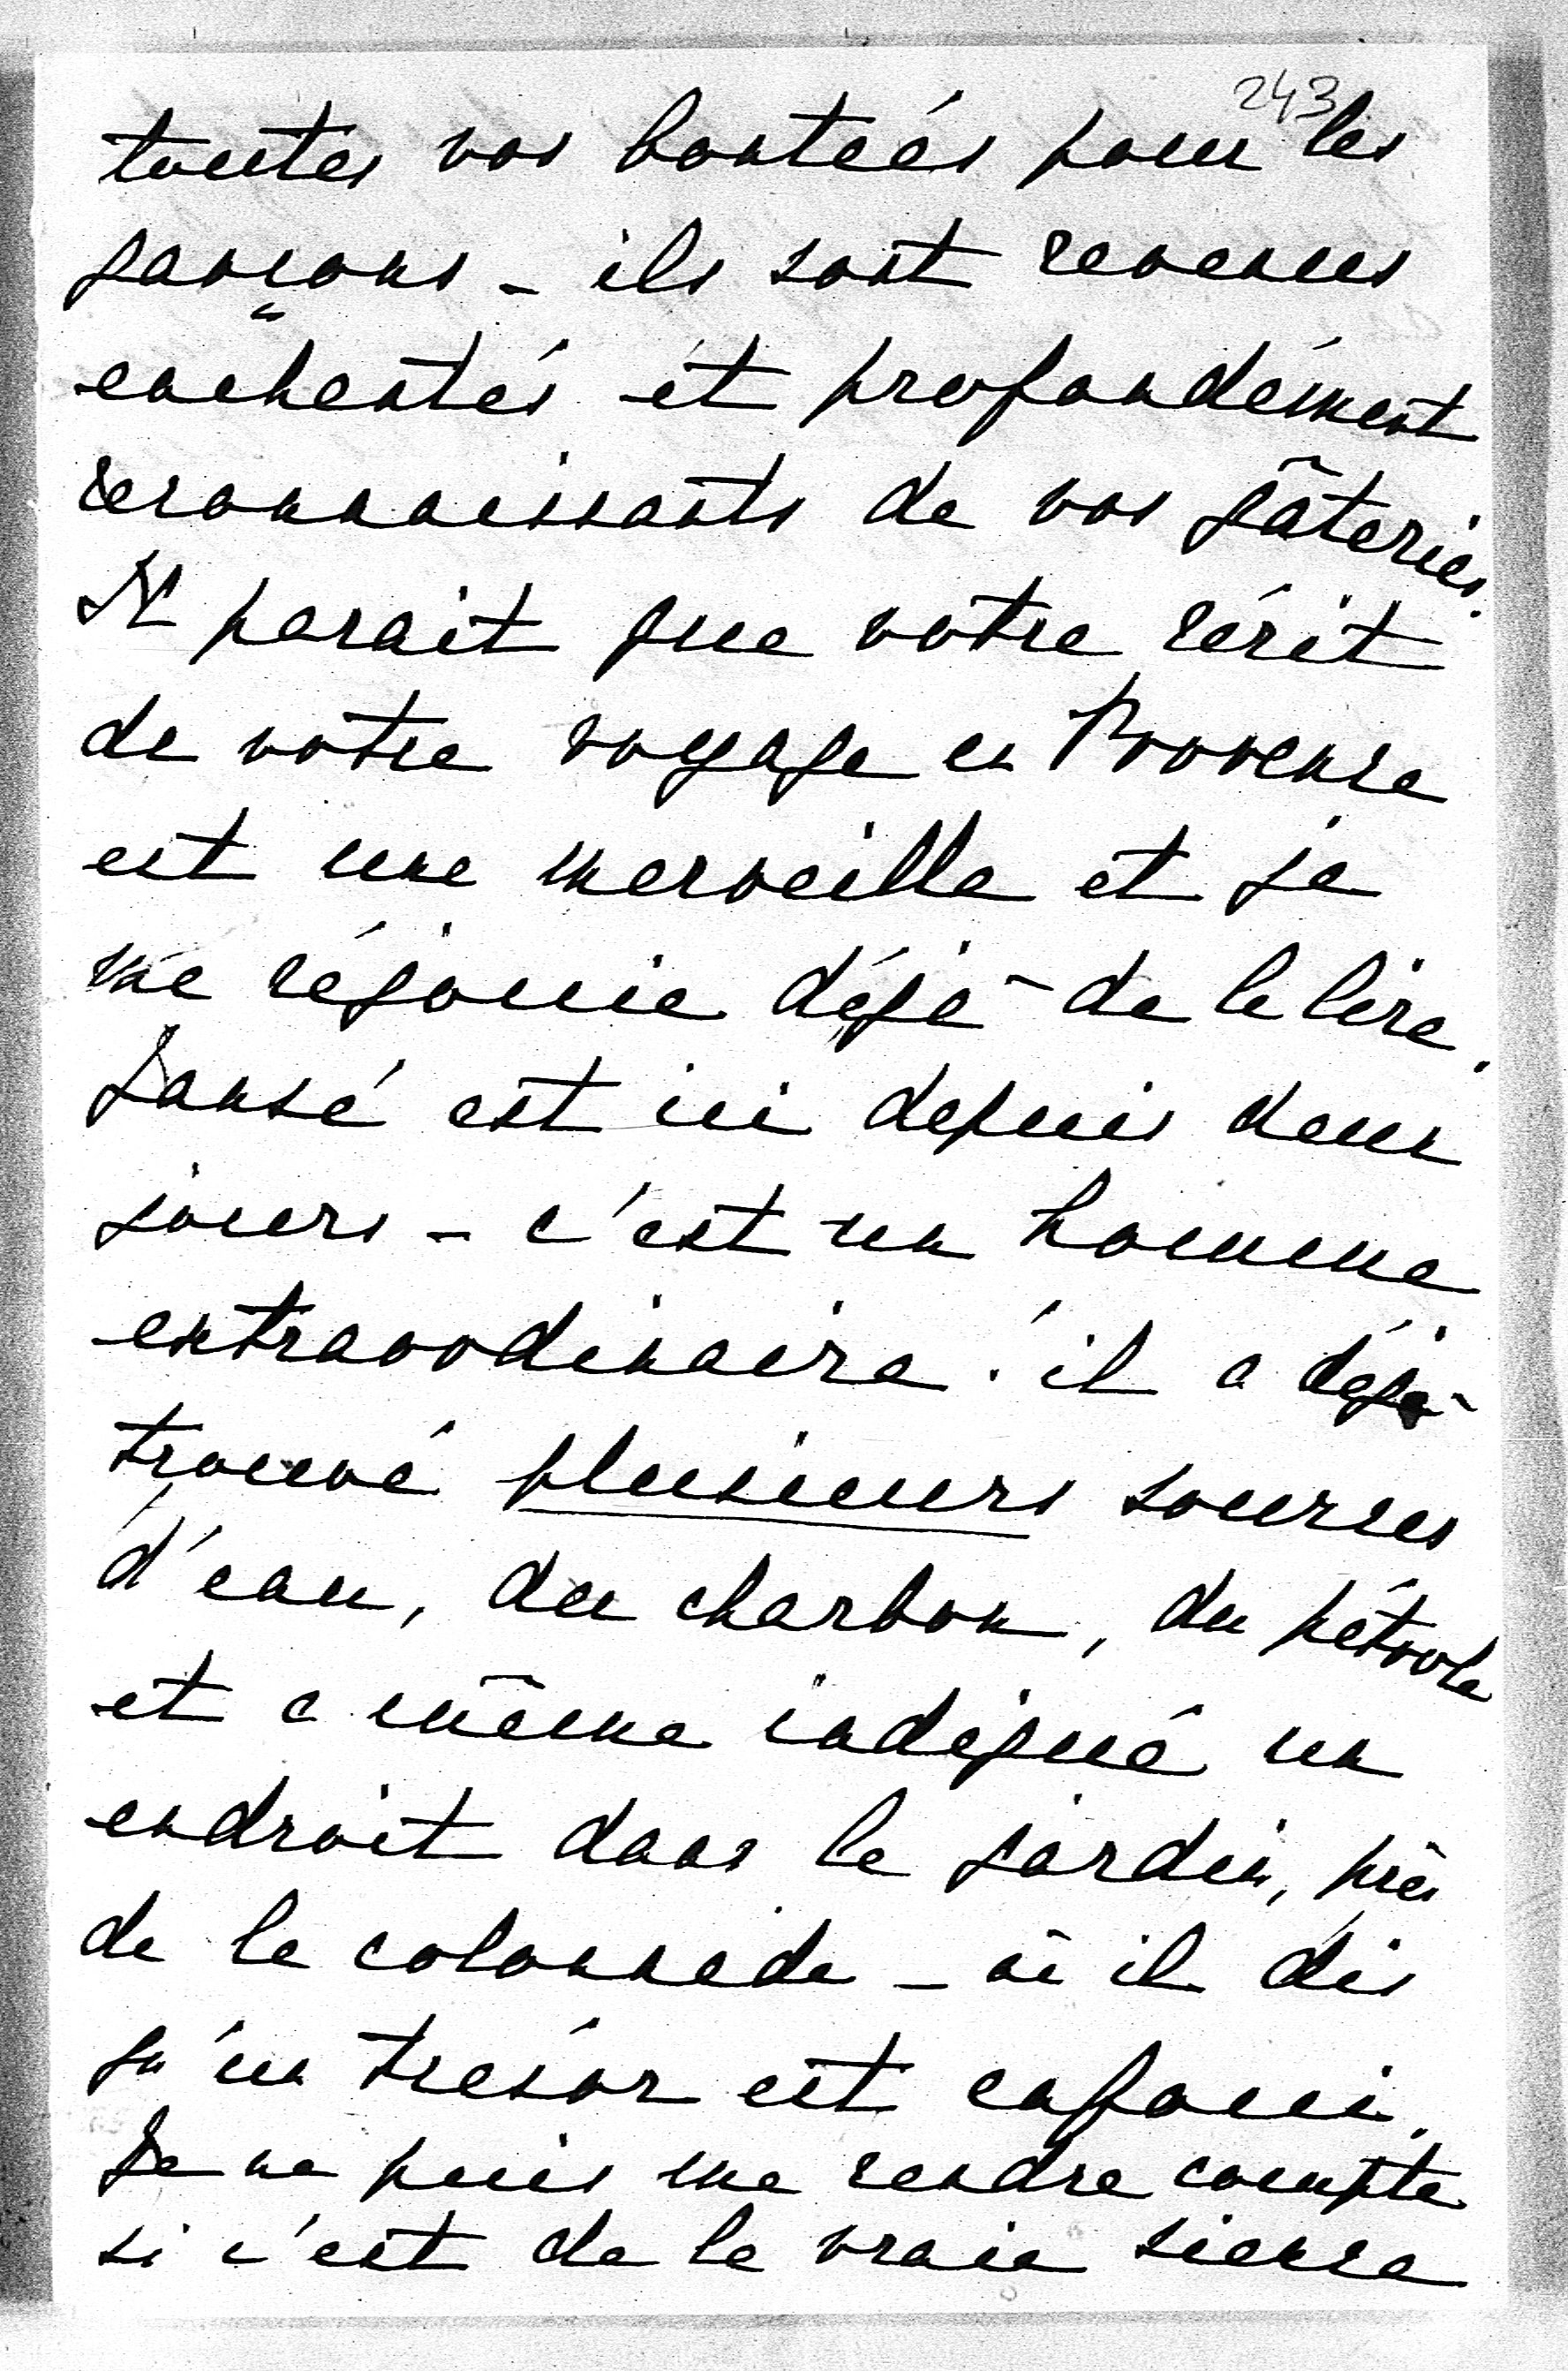 243
toutes vos bontées pour les
garçons - ils sont revenus
enchentés et profondément
reconnaissants de vos gâteries.
Il parait que votre récit
de votre voyage en Provence
est une merveille et je
me réjouie déjà de le lire.
Jansé est ici depuis deux
jours - c'est un homme
extraordinaire. il a déjà
trouvé plusieurs sources
d'eau, du charbon, du pétrole
et a même indiqué un
endroit dans le jardin, près
de la colonnade - où il dis
qu'un trésor est enfoui.
Je ne puis me rendre compte
si c'est de la vraie sience